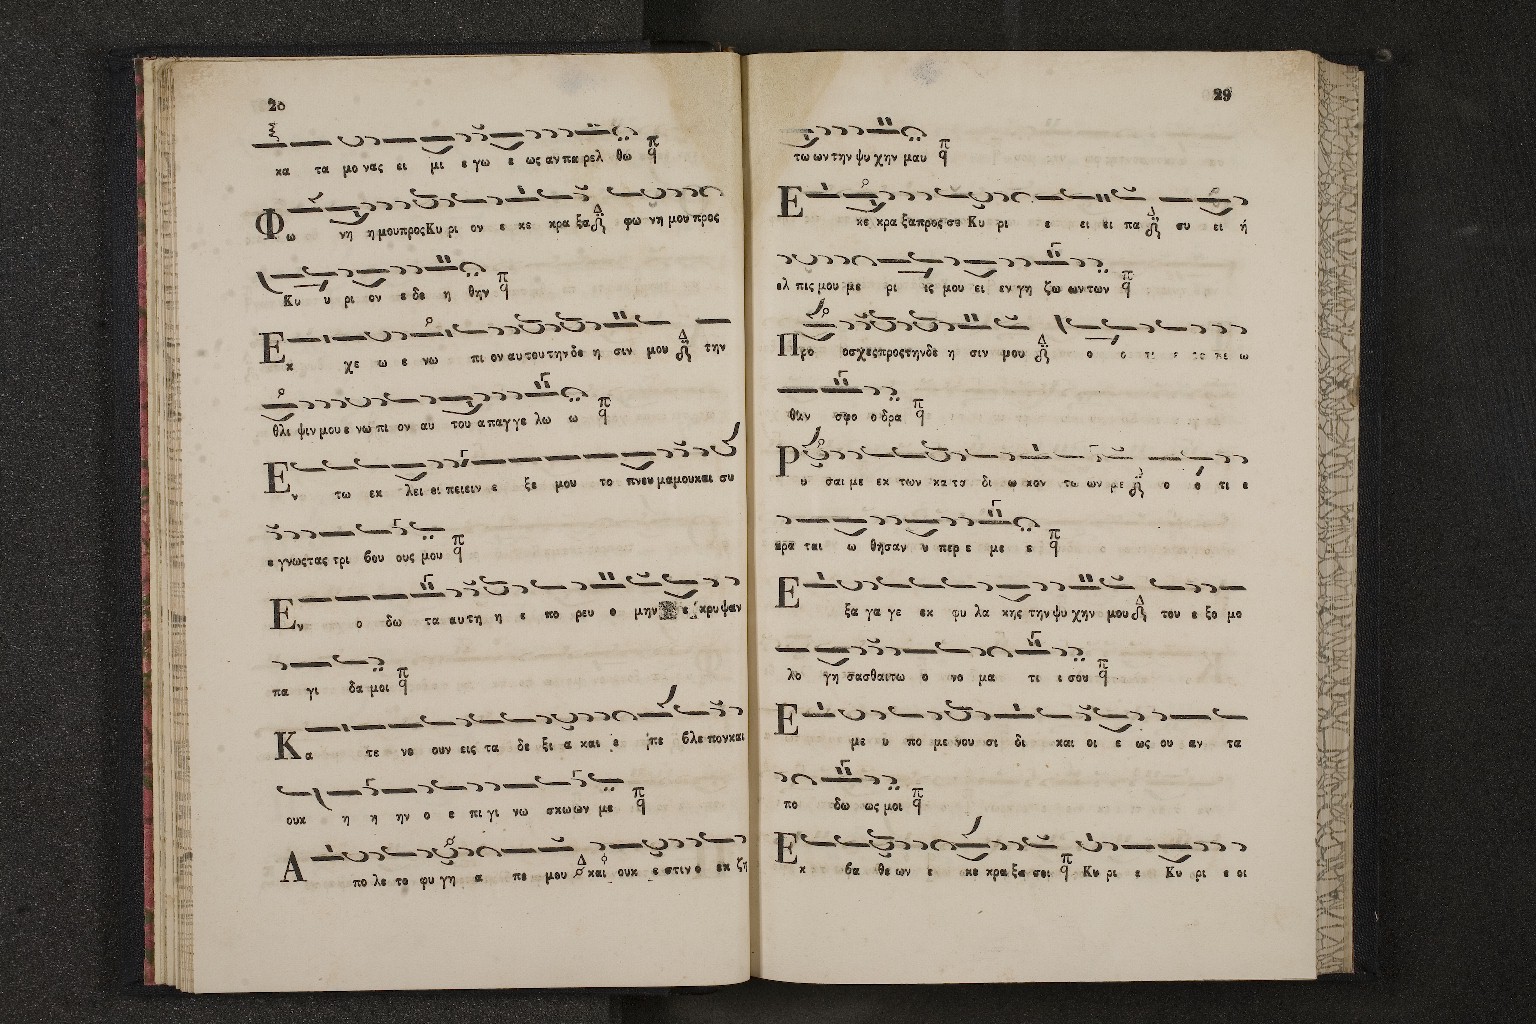 28
κα τα μο νας ει μι ε γω ε ως αν πα ρελ θω
Φω νη η μου προς Κυ ρι ον ε κε κρα ξα φω νη μου προς
Κυ υ ρι ον ε δε η θην
Εκ χε ω ε νω πι ον αυ του την δε η σιν μου την
θλι ψιν μου ε νω πι ον αυ του α παγ γε λω ω
Εν τω εκ λει ει πειειν ε ξε μου το πνευ μαμουκαι συ
ε γνωςτας τρι βου ους μου
Εν ο δω τα αυ τη η ε πο ρευ ο μην ε κρυψαν
πα γι δα μοι
Κα τε νο ουν εις τα δε ξι α και ε πε βλε πονκαι
ουκ η η ην ο ε πι γι νω σκωων με
Α πο λε το φυ γη α πε μου και ουκ ε στιν ο εκ ζη
29
τω ων την ψυ χην μου
Ε κε κρα ξαπρος σε Κυ ρι ε ει ει πα συ ει ή
ελ πις μου με ρι ις μου ει εν γη ζω ωντων
Προ οσχεςπροςτηνδε η σιν μου ο ο τι ε τα πει ω
θην σφο ο δρα
Ρυ σαι με εκ των κα τα δι ω κον τω ων με ο ό τι ε
κρα ται ω θησαν υ περ ε με ε
Ε ξα γα γε εκ φυ λα κης την ψυ χην μου του ε ξο μο
λο γη σασθαιτω ο νο μα τι ι σου
Ε με υ πο με νου σι δι και οι ε ως ου αν τα
πο δω ως μοι
Εκ βα θε ων ε κε κρα ξα σοι Κυ ρι ε Κυ ρι ε οι